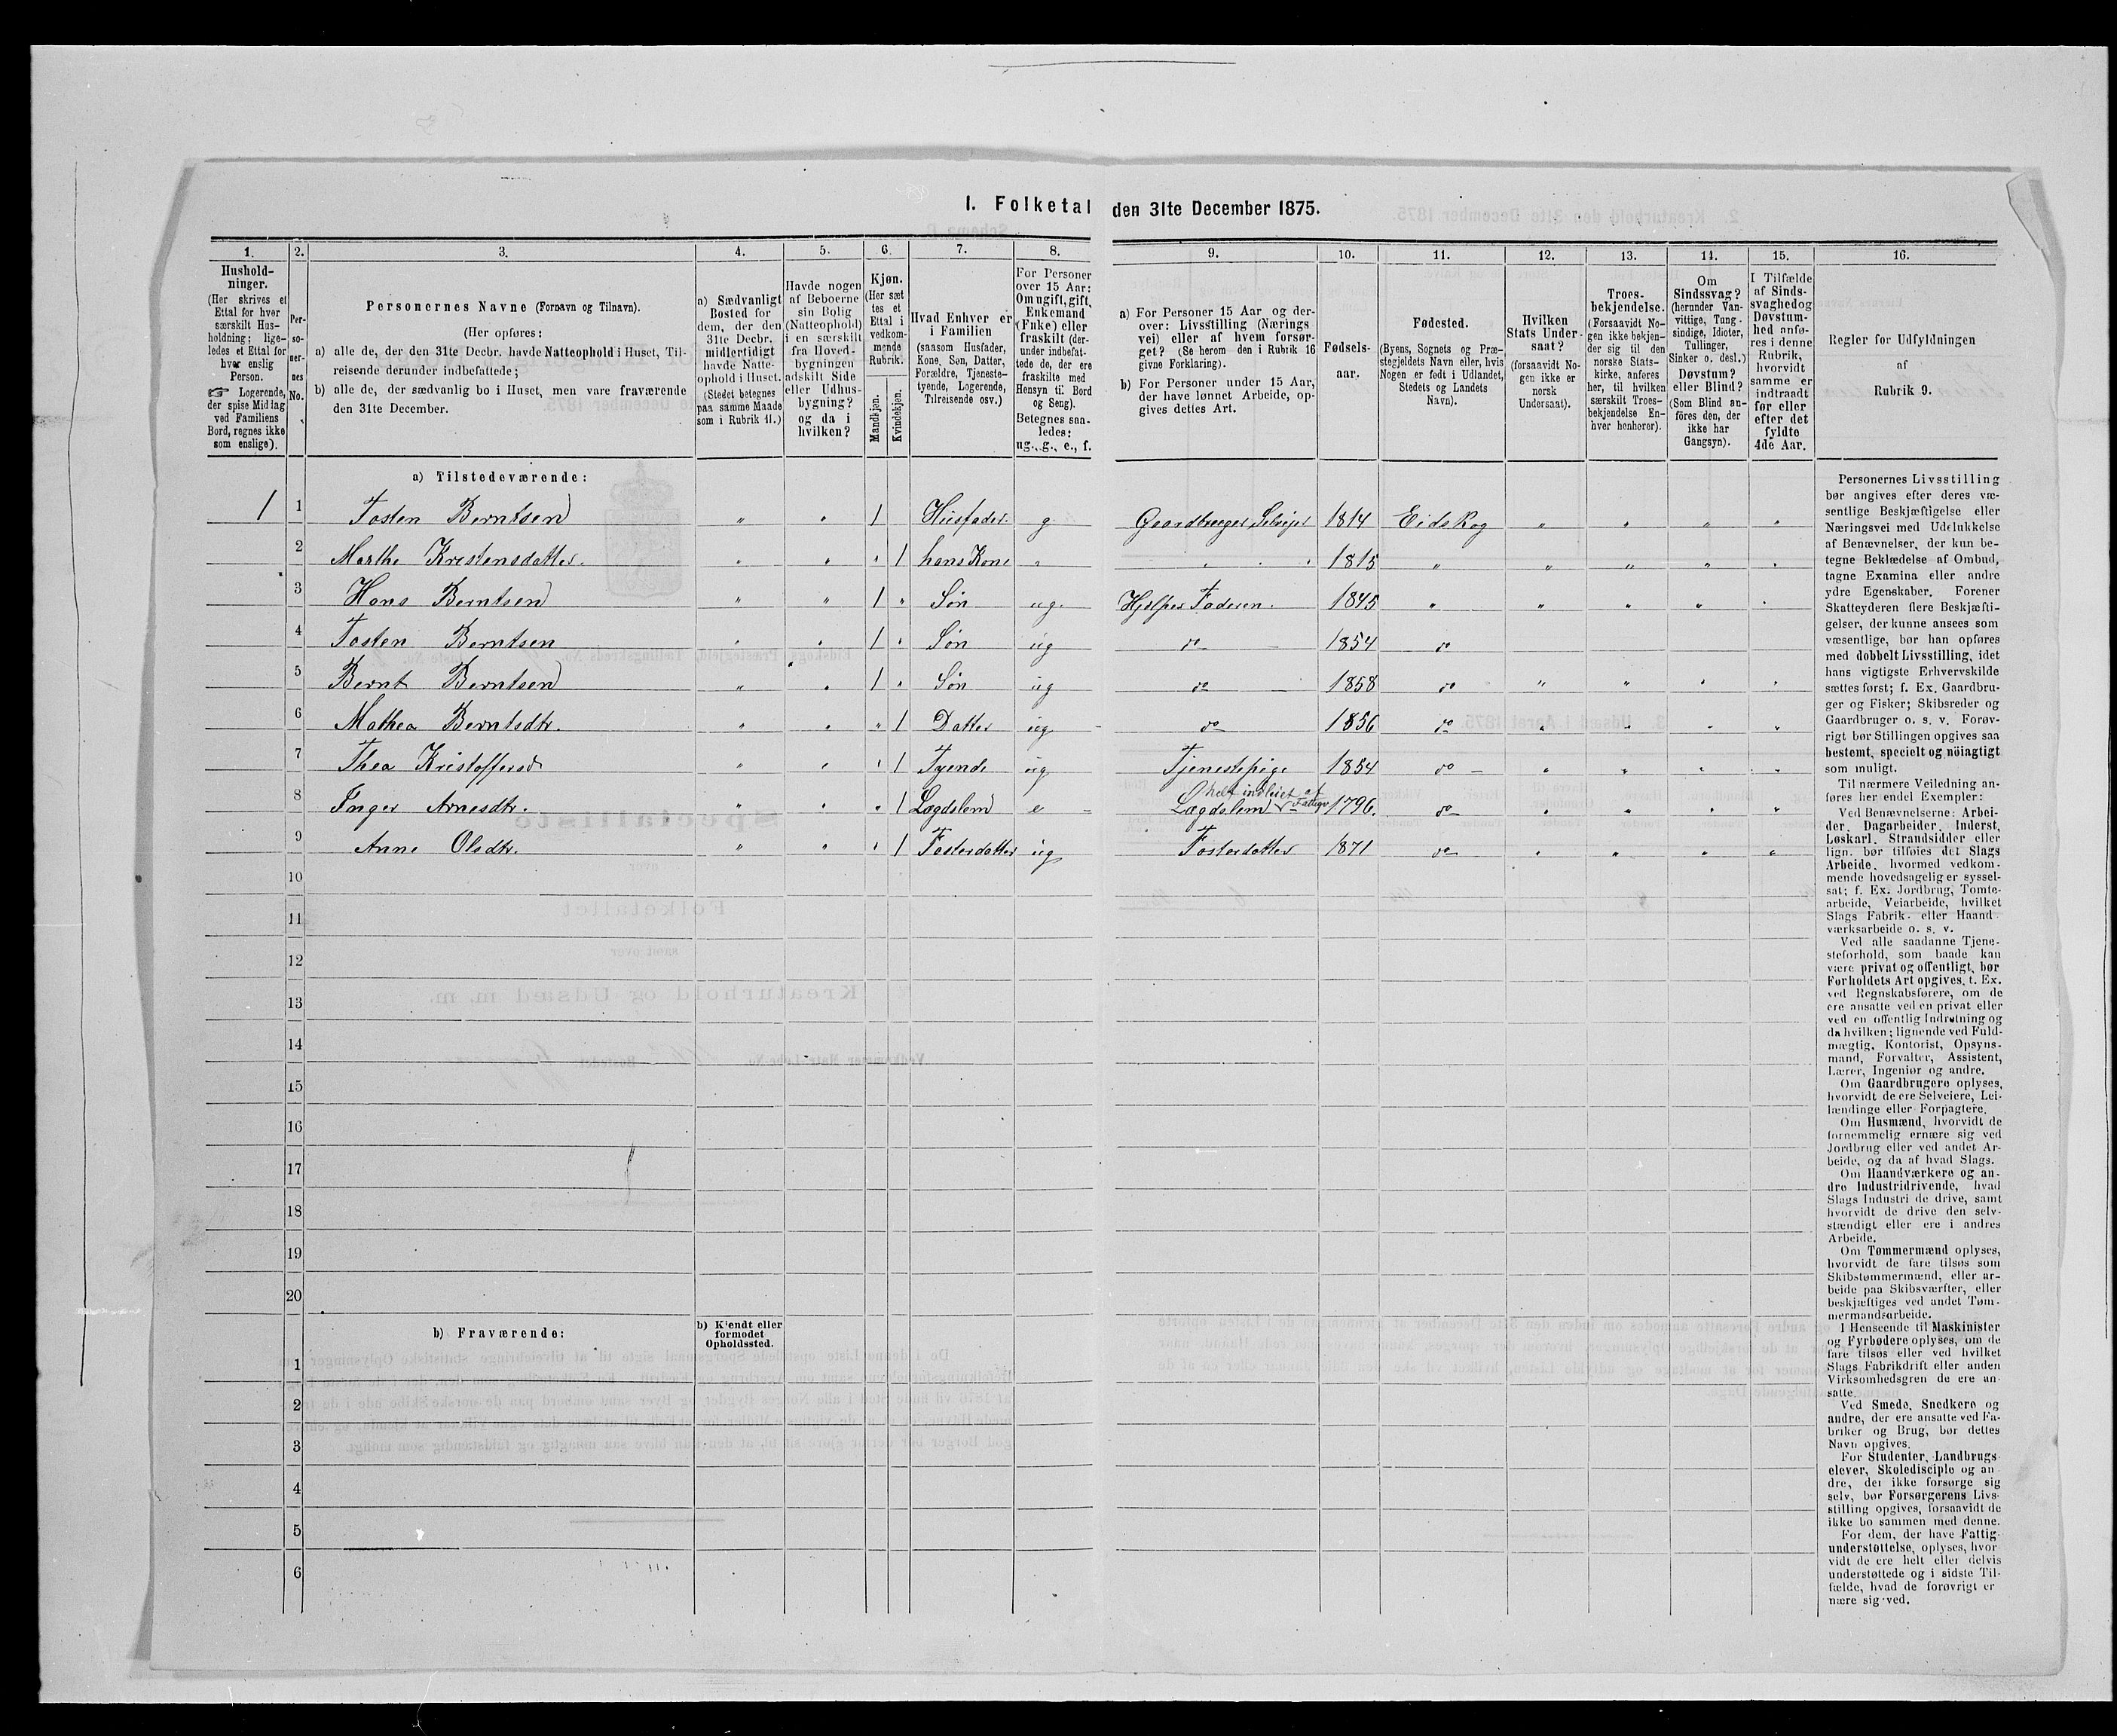 I. Folketal den 31te December 1875.
1. 2. 3. 4. 5. 6. 7. 8. 9. 10. 11. 12. 13. 14. 15. 16.
Hushold-
ninger.
(Her skrives et
Ettal for hver
særskilt Hus-
holdning; lige-
ledes et Ettal for
hver enslig
Person.
Logerende,
der spise Middag
ved Familiens
Bord, regnes ikke
som enslige).
Per-
so-
ner-
nes
No.
Personernes Navne (Fornavn og Tilnavn).
(Her opføres:
a) alle de, der den 31te Decbr. havde Natteophold i Huset, Til-
reisende derunder indbefattede;
b) alle de, der sædvanlig bo i Huset, men vare fraværende
den 31te December.
a) Sædvanligt
Bosted for
dem, der den
31te Decbr.
midlertidigt
havde Natte-
ophold i Huset.
(Stedet betegnes
paa samme Maade
som i Rubrik 11.)
Havde nogen
af Beboerne
sin Bolig
(Natteophold)
i en særskilt
fra Hoved-
bygningen
adskilt Side
eller Udhus-
bygning?
og da i
hvilken?
Kjøn.
(Her sæt
tes et
Ettal i
vedkom-
mende
Rubrik.
Mandkjøn.
Kvindekjøn.
Hvad Enhver er
i Familien
(saasom Husfader,
Kone, Søn, Datter,
Forældre, Tjeneste-
tyende, Logerende,
Tilreisende osv.)
For Personer
over 15 Aar:
Om ugift, gift,
Enkemand
(Enke) eller
fraskilt (der-
under indbefat-
tede de, der ere
fraskilte med
Hensyn til Bord
og Seng).
Betegnes saa-
ledes:
ug., g., e., f.
a) For Personer 15 Aar og der-
over: Livsstilling (Nærings
vei) eller af hvem forsør-
get? (Se herom den i Rubrik 16
givne Forklaring).
b) For Personer under 15 Aar,
der have lønnet Arbeide, op-
gives dettes Art.
Fødsels-
aar.
Fødested.
(Byens, Sognets og Præ-
stegjeldets Navn eller, hvis
Nogen er født i Udlandet,
Stedets og Landets
Navn).
Hvilken
Stats Under-
saat?
(forsaavidt No-
gen ikke er
norsk
Undersaat).
Troes-
bekjendelse.
(Forsaavidt No-
gen ikke bekjen-
der sig til den
norske Stats-
kirke, anføres
her, til hvilken
særskilt Troes-
bekjendelse En-
hver henhører).
Om
Sindssvag?
(herunder Van-
vittige, Tung-
sindige, Idioter,
Tullinger,
Sinker o. desl.)
Døvstum?
eller Blind?
(Som Blind an-
føres den, der
ikke har
Gangsyn).
I Tilfælde
af Sinds-
svaghed og
Døvstum-
hed anfø-
res i denne
Rubrik,
hvorvidt
samme er
indtraadt
før eller
efter det
fyldte
4de Aar.
Regler for Udfyldningen
af
Rubrik 9.
a) Tilstedeværende:
1 1 Tosten Berntsen " " 1 Husfader g Gaardbruger Selvejer 1814 Eidskog " " " "
2 Marthe Kristensdatter. " " " 1 hans Kone " " " " 1815 " " " " "
3 Hans Berntsen " " 1 " Søn ug. Hjelper Faderen. 1845 " " " " "
4 Tosten Berntsen " " 1 " Søn ug do 1854 do
5 Bernt Berntsen " " 1 " Søn ug do 1858 do " " " "
6 Mathea Berntsdtr. " " " 1 Datter ug do 1856 do " " " "
7 Thea Kristoffersd " " " 1 Tyende ug Tjenestepige 1854 do " " " "
8 Inger Arnesdtr. " " " 1 Lægdslem e Lægdslem 1796. do " " " "
9 Anne Olsdtr. " " " 1 Fosterdatter ug Fosterdatter 1871 do " " " "
10
11
12
13
14
15
16
17
18
19
20
b) Fraværende:
b) Kjendt eller
formodet
Opholdssted.
1
2
3
4
5
6
Personernes Livsstilling
bør angives efter deres væ-
sentlige Beskjæftigelse eller
Næringsvei med Udelukkelse
af Benævnelser, der kun be-
tegne Beklædelse af Ombud,
tagne Examina eller andre
ydre Egenskaber. Forener
Skatteyderen flere Beskjæfti-
gelser, der kunne ansees som
væsentlige, bør han opføres
med dobbelt Livsstilling, idet
hans vigtigste Erhvervskilde
sættes først; f. Ex. Gaardbru-
ger og Fisker; Skibsreder og
Gaardbruger o. s. v. Forøv-
rigt bør Stillingen opgives saa
bestemt, specielt og nøiagtigt
som muligt.
Til nærmere Veiledning an-
føres her endel Exempler:
Ved Benævnelserne: Arbei-
der, Dagarbeider, Inderst,
Løskarl, Strandsidder eller
lign. bør tilføies det Slags
Arbeide, hvormed vedkom-
mende hovedsagelig er syssel-
sat; f. Ex. Jordbrug, Tomte-
arbeide, Veiarbeide, hvilket
Slags Fabrik- eller Haand
værksarbeide o. s. v.
Ved alle saadanne Tjene-
steforhold, som baade kan
være privat og offentligt, bør
Forholdets Art opgives, t. Ex.
ved Regnskabsførere, om de
ere ansatte ved en privat eller
ved en offentlig Indretning og
da hvilken; lignende ved Fuld-
mægtig, Kontorist, Opsyns-
mand, Forvalter, Assistent,
Lærer, Ingeniør og andre.
Om Gaardbrugere oplyses,
hvorvidt de ere Selveiere, Lei-
lændinge eller Forpagtere.
Om Husmænd, hvorvidt de
fornemmelig ernære sig ved
Jordbrug eller ved andet Ar-
beide, og da af hvad Slags.
Om Haandværkere og an-
dre Industridrivende, hvad
Slags Industri de drive, samt
hvorvidt de drive den selv-
stændigt eller ere i andres
Arbeide.
Om Tømmermænd oplyses,
hvorvidt de fare tilsøs som
Skibstømmermænd, eller ar-
beide paa Skibsværfter, eller
beskjæftiges ved andet Tøm-
mermandsarbeide.
I Henseende til Maskinister
og Fyrbødere oplyses, om de
fare tilsøs eller ved hvilket
Slags Fabrikdrift eller anden
Virksomhedsgren de ere an-
satte.
Ved Smede, Snedkere og
andre, der ere ansatte ved Fa-
briker og Brug, bør dettes
Navn opgives.
For Studenter, Landbrugs
elever, Skoledisciple og an
dre, der ikke forsørge sig
selv, bør Forsørgerens Livs-
stilling opgives, forsaavidt de
ikke bo sammen med denne.
For dem, der have Fattig-
understøttelse, oplyses, hvor
vidt de ere helt eller delvis
understøttede og i sidste Til-
fælde, hvad de forøvrigt er
nære sig ved.